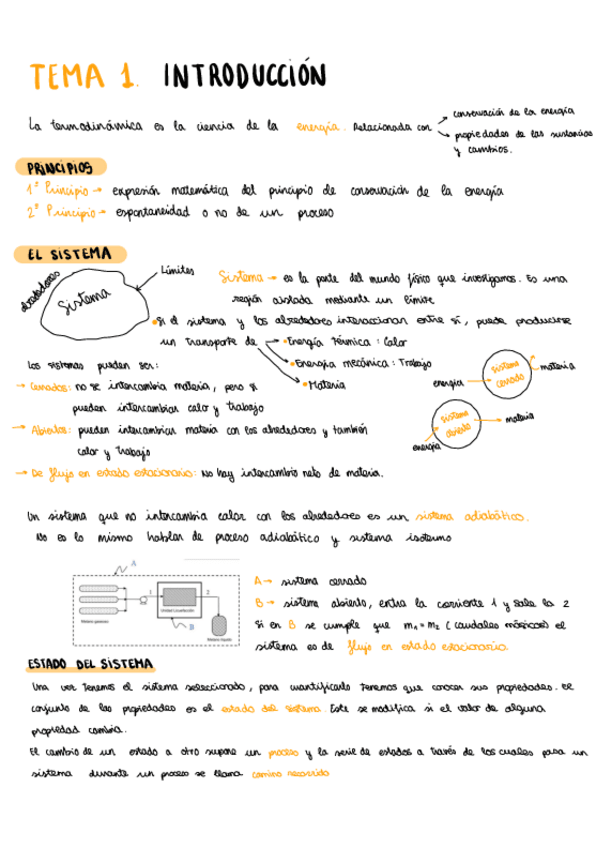 TEMA 1. INTRODUCCIÓN
La termodinámica es la ciencia de la energía. Relacionada con
conservación de la energía
propiedades de las sustancias
y cambios.
PRINCIPIOS
1º Principio → expresión matemática del principio de conservación de la energía
2º Principio → espontaneidad o no de un proceso
EL SISTEMA
alrededores
Sistema
Límites
Sistema → es la parte del mundo físico que investigamos. Es una
región aislada mediante un límite
• Si el sistema y los alrededores interaccionan entre sí, puede producirse
un transporte de
• Energía térmica: Calor
• Energía mecánica: Trabajo
• Materia
Los sistemas pueden ser:
→ Cerrados: no se intercambia materia, pero sí
pueden intercambiar calor y trabajo
→ Abiertos: pueden intercambiar materia con los alrededores y también
calor y trabajo
→ De flujo en estado estacionario: No hay intercambio neto de materia.
sistema
cerrado
materia
energía
sistema
abierto
materia
energía
Un sistema que no intercambia calor con los alrededores es un sistema adiabático.
No es lo mismo hablar de proceso adiabático y sistema isotermo
A
1
2
Metano gaseoso
Unidad Licuefacción
B
Metano líquido
A → sistema cerrado
B → sistema abierto, entra la corriente 1 y sale la 2
Si en B se cumple que m₁ = m₂ (caudales másicos) el
sistema es de flujo en estado estacionario.
ESTADO DEL SISTEMA
Una vez tenemos el sistema seleccionado, para cuantificarlo tenemos que conocer sus propiedades. El
conjunto de las propiedades es el estado del sistema. Este se modifica si el valor de alguna
propiedad cambia.
El cambio de un estado a otro supone un proceso y la serie de estados a través de los cuales pasa un
sistema durante un proceso se llama camino recorrido